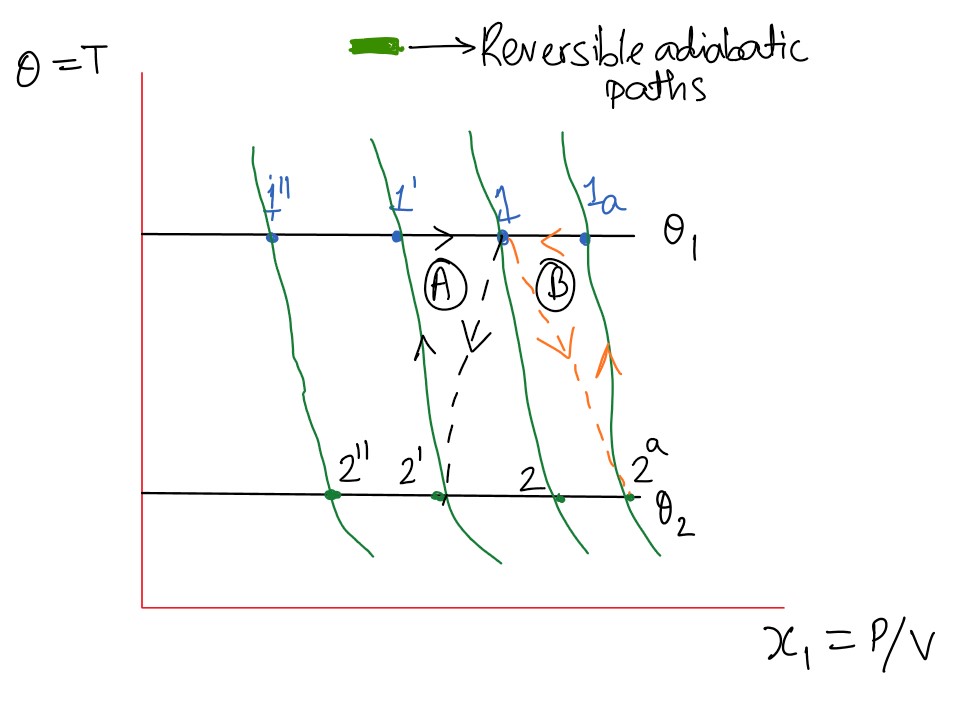 θ = T
Reversible adiabatic
paths
1''
1'
1
1a
θ₁
A
B
2''
2'
2
2ᵃ
θ₂
x₁ = P/V